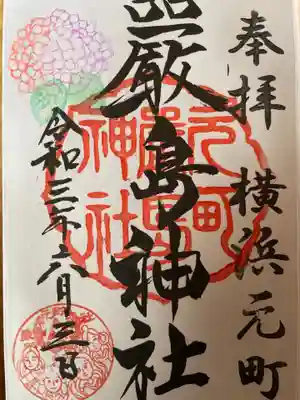 奉拝 横浜元町
嚴島神社
令和三年六月三日
元町
嚴島
神社